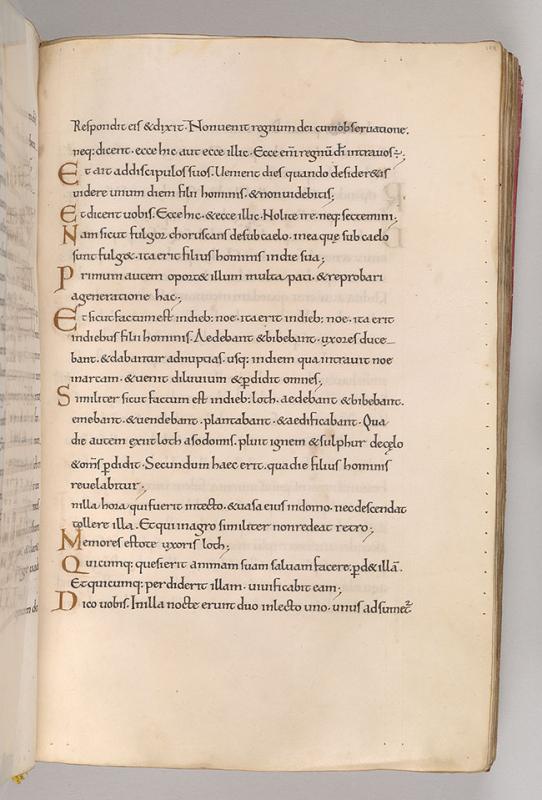 Respondit eis & dixit. Non uenit regnum dei cum obseruatione.
neq; dicent. ecce hic. aut ecce illic. Ecce eni̅ regnu̅ di̅ intra uos÷;
Et ait ad discipulos suos. Uenient dies quando desider&is
uidere unum diem filii hominis. & non uidebitis;
Et dicent uobis. Ecce hic. & ecce illic. Nolite ire. neq; sectemini;
Nam sicut fulgor choruscans de sub caelo. in ea que sub caelo
sunt fulg&. ita erit filius hominis in die sua;
Primum autem oport& illum multa pati. & reprobari
a generatione hac;
Et sicut factum est in dieb; noe. ita erit in dieb; noe. ita erit
in diebus filii hominis. Aedebant & bibebant. uxores duce
bant. & dabantur ad nuptias. usq; in diem qua intrauit noe
in arcam. & uenit diluuium & p̲didit omnes;
Similiter sicut factum est in dieb; loth. aedebant & bibebant.
emebant. & uendebant. plantabant. & aedificabant. Qua
die autem exiit loth a sodomis. pluit ignem & sulphur de cęlo
& om̅s p̲didit. Secundum haec erit. qua die filius hominis
reuelabitur;
n illa hora qui fuerit in tecto. & uasa eius in domo. ne descendat
tollere illa. Et qui in agro similiter non redeat retro;
Memores estote uxoris loth;
Quicumq; quesierit animam suam saluam facere. p̲d& illa̅.
Et quicumq; perdiderit illam. uiuificabit eam;
Dico uobis. In illa nocte erunt duo in lecto uno. unus adsumet᷑